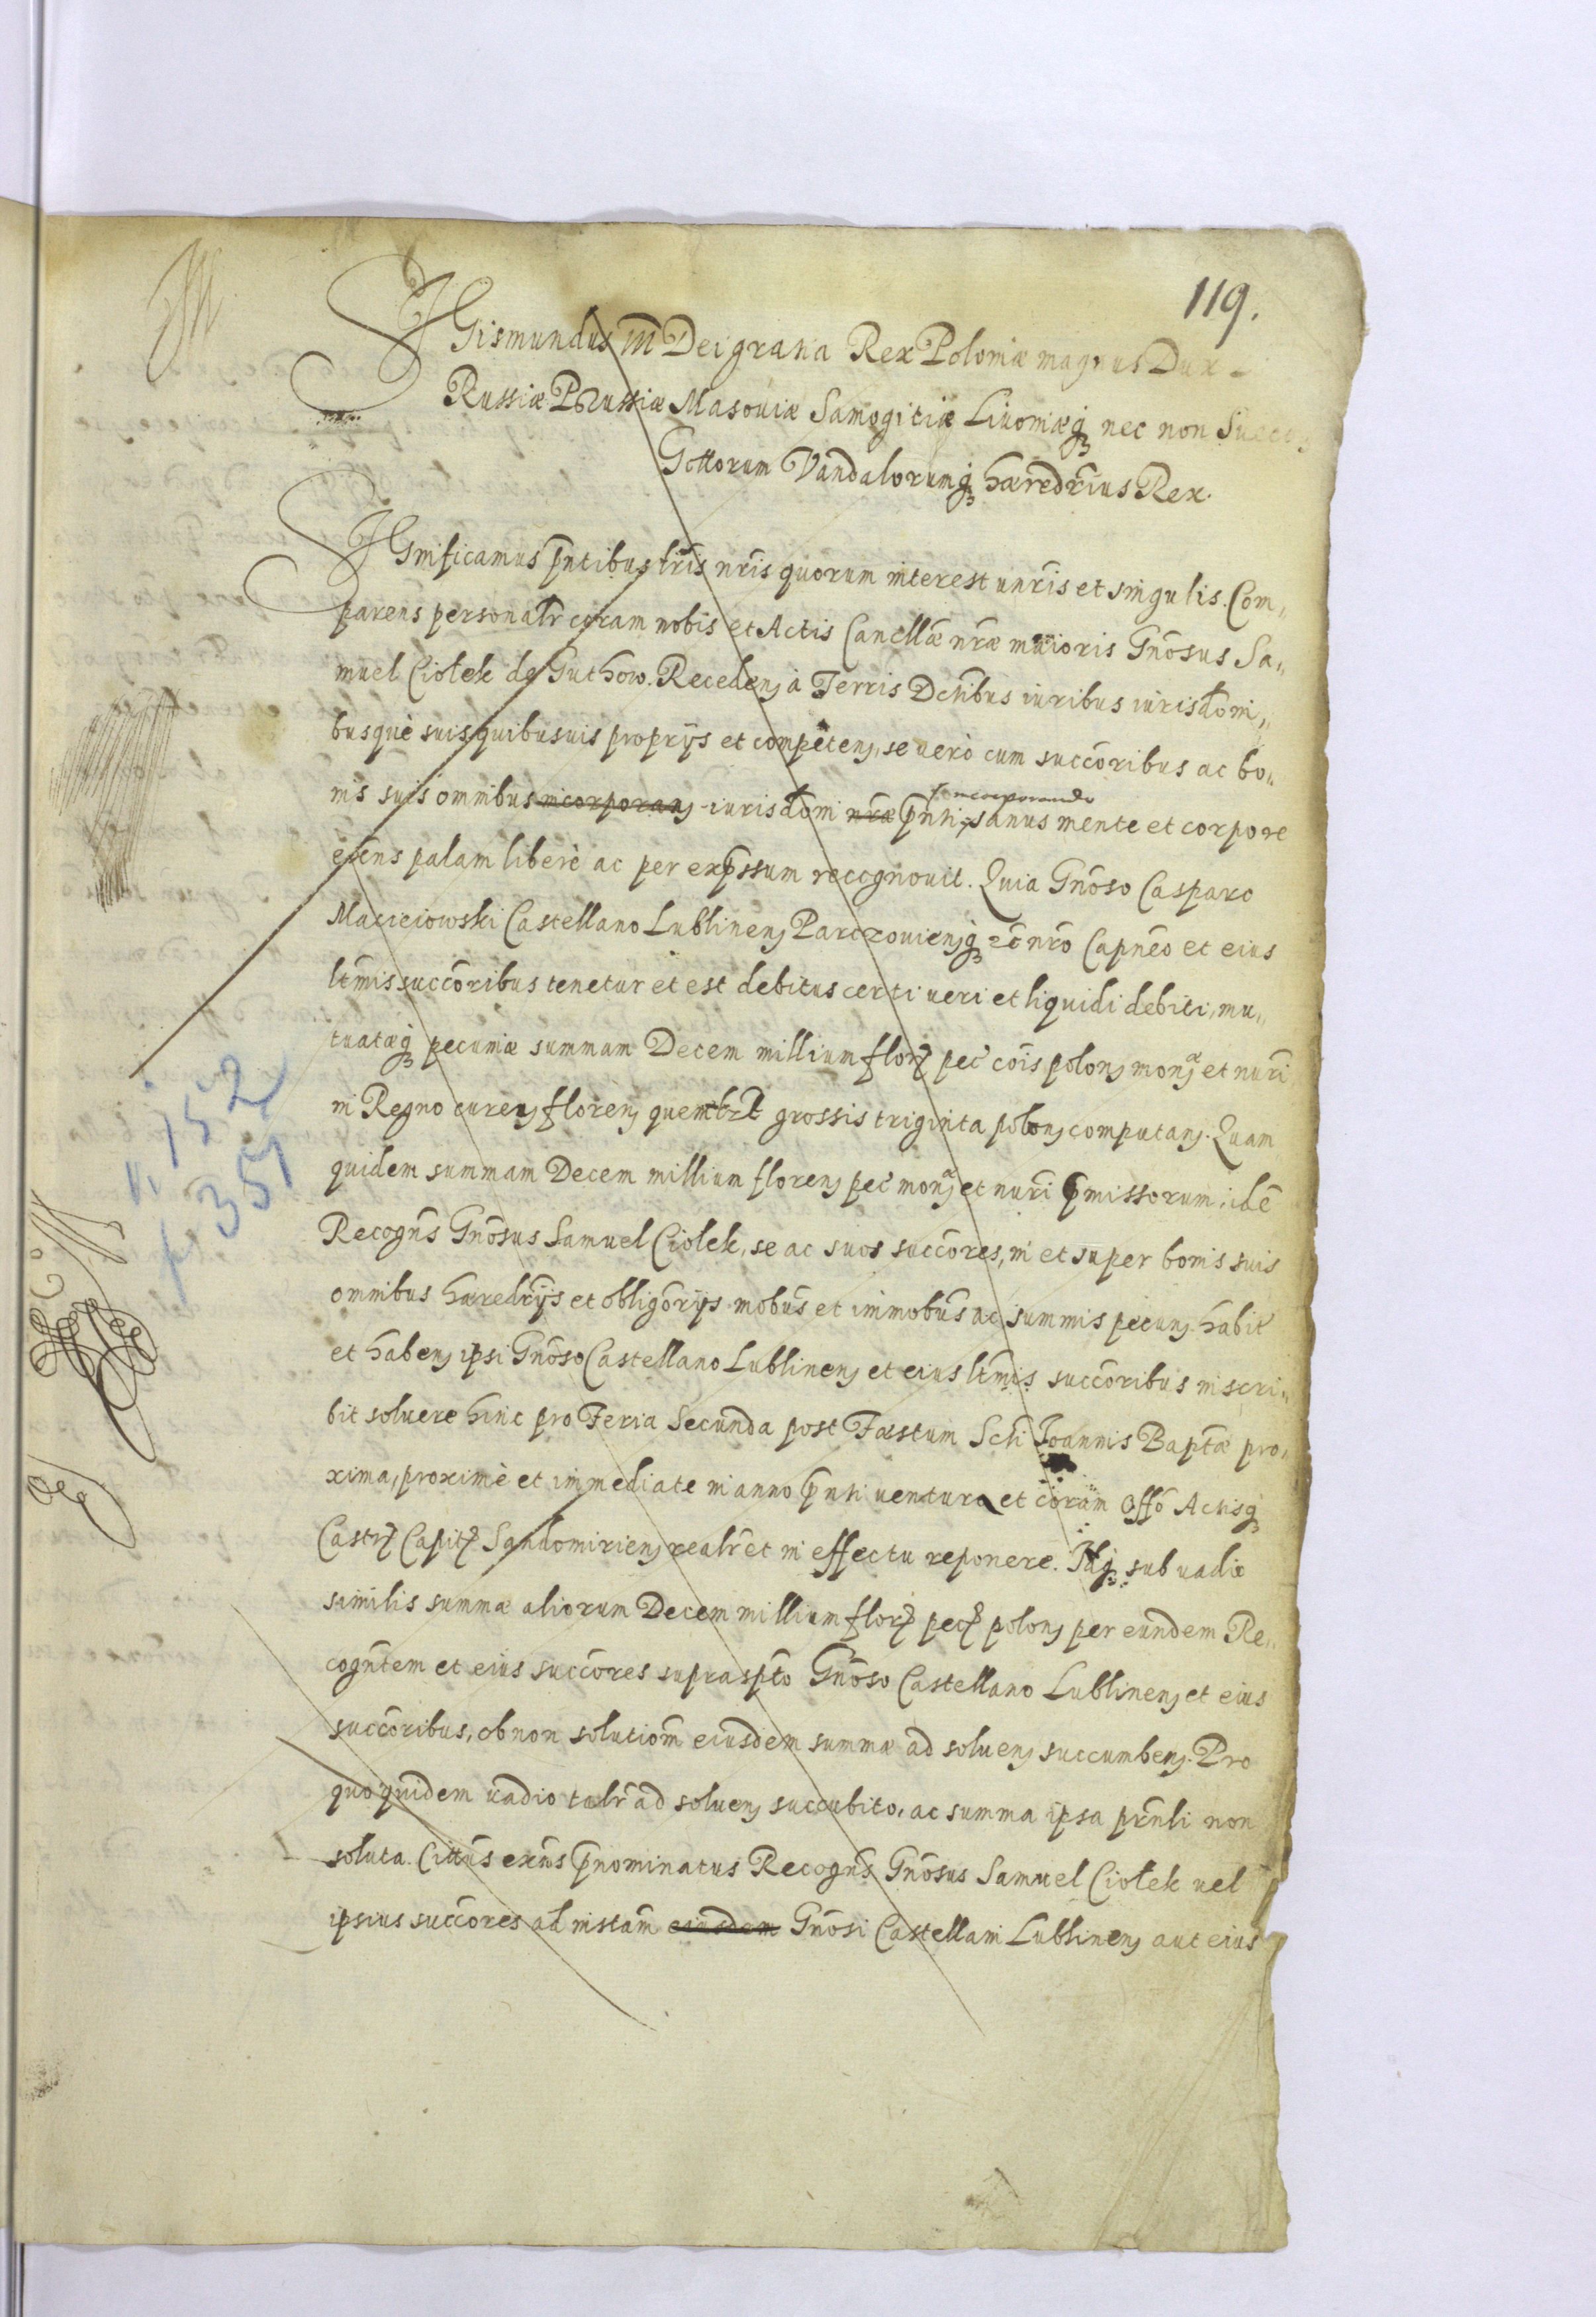 119.
SIGismundus III Dei gratia Rex Poloniæ magnus Dux
Russiæ Prussiæ Masouiæ Samogitiæ Liuoniæq; nec non Suecor
Gottorum Vandalorumq; hæredrius Rex.
SIGnificamus pntibus lris nris quorum interest unris et singulis. Com„
parens personalr coram nobis et Actis Cancellæ nræ maioris Gnosus Sa„
muel Ciołek de Guthow. Recedens à Terris Dctibus iuribus iurisdomi„
busquè suis quibusuis proprijs et competens, se uerò cum succoribus ac bo„
nis suis omnibus incorporans iurisdomi nræ pnti incorporando sanus mente et corpore
exens palam liberè ac per expssum recognouit. Quia Gnoso Casparo
Macieiowski Castellano Lublinens Parczouiensq; etc nro Capneo et eius
ltmis succoribus tenetur et est debitus certi ueri et liquidi debiti, mu„
tuatæq; pecuniæ summam Decem millium flor pec cois polons mon et nuri
in Regno curens florens quemlbt grossis triginta polons computans. Quam
quidem summam Decem millium florens pec mon et nuri pmissorum, idē
Recogns Gnosus Samuel Ciołek, se ac suos succores, in et super bonis suis
omnibus hæredrijs et obligorijs mobus et immobus ac summis pecuns habit
et habens ipsi Gnoso Castellano Lublinens et eius ltmis succoribus inscri„
bit soluere hinc pro Feria Secunda post Fæstum Scti Ioannis Baptæ pro„
xima, proximè et immediate in anno pnti uentura et coram Offo Actisq;
Castr Capit Sandomiriens realr et in effectu reponere. Idq; sub uadio
similis summæ aliorum Decem millium flor pec polons per eundem Re„
cogntem et eius succores suprasptо Gnoso Castellano Lublinens et eius
succoribus, ob non solutiom eiusdem summæ ad soluens succumbens. Pro
quo quidem uadio talr ad soluens succubito, ac summa ipsa prnli non
soluta. Cittus exns pnominatus Recogns Gnosus Samuel Ciołek uel
ipsius succores ad instam eiusdem Gnosi Castellani Lublinens aut eius
n. 152
p 351